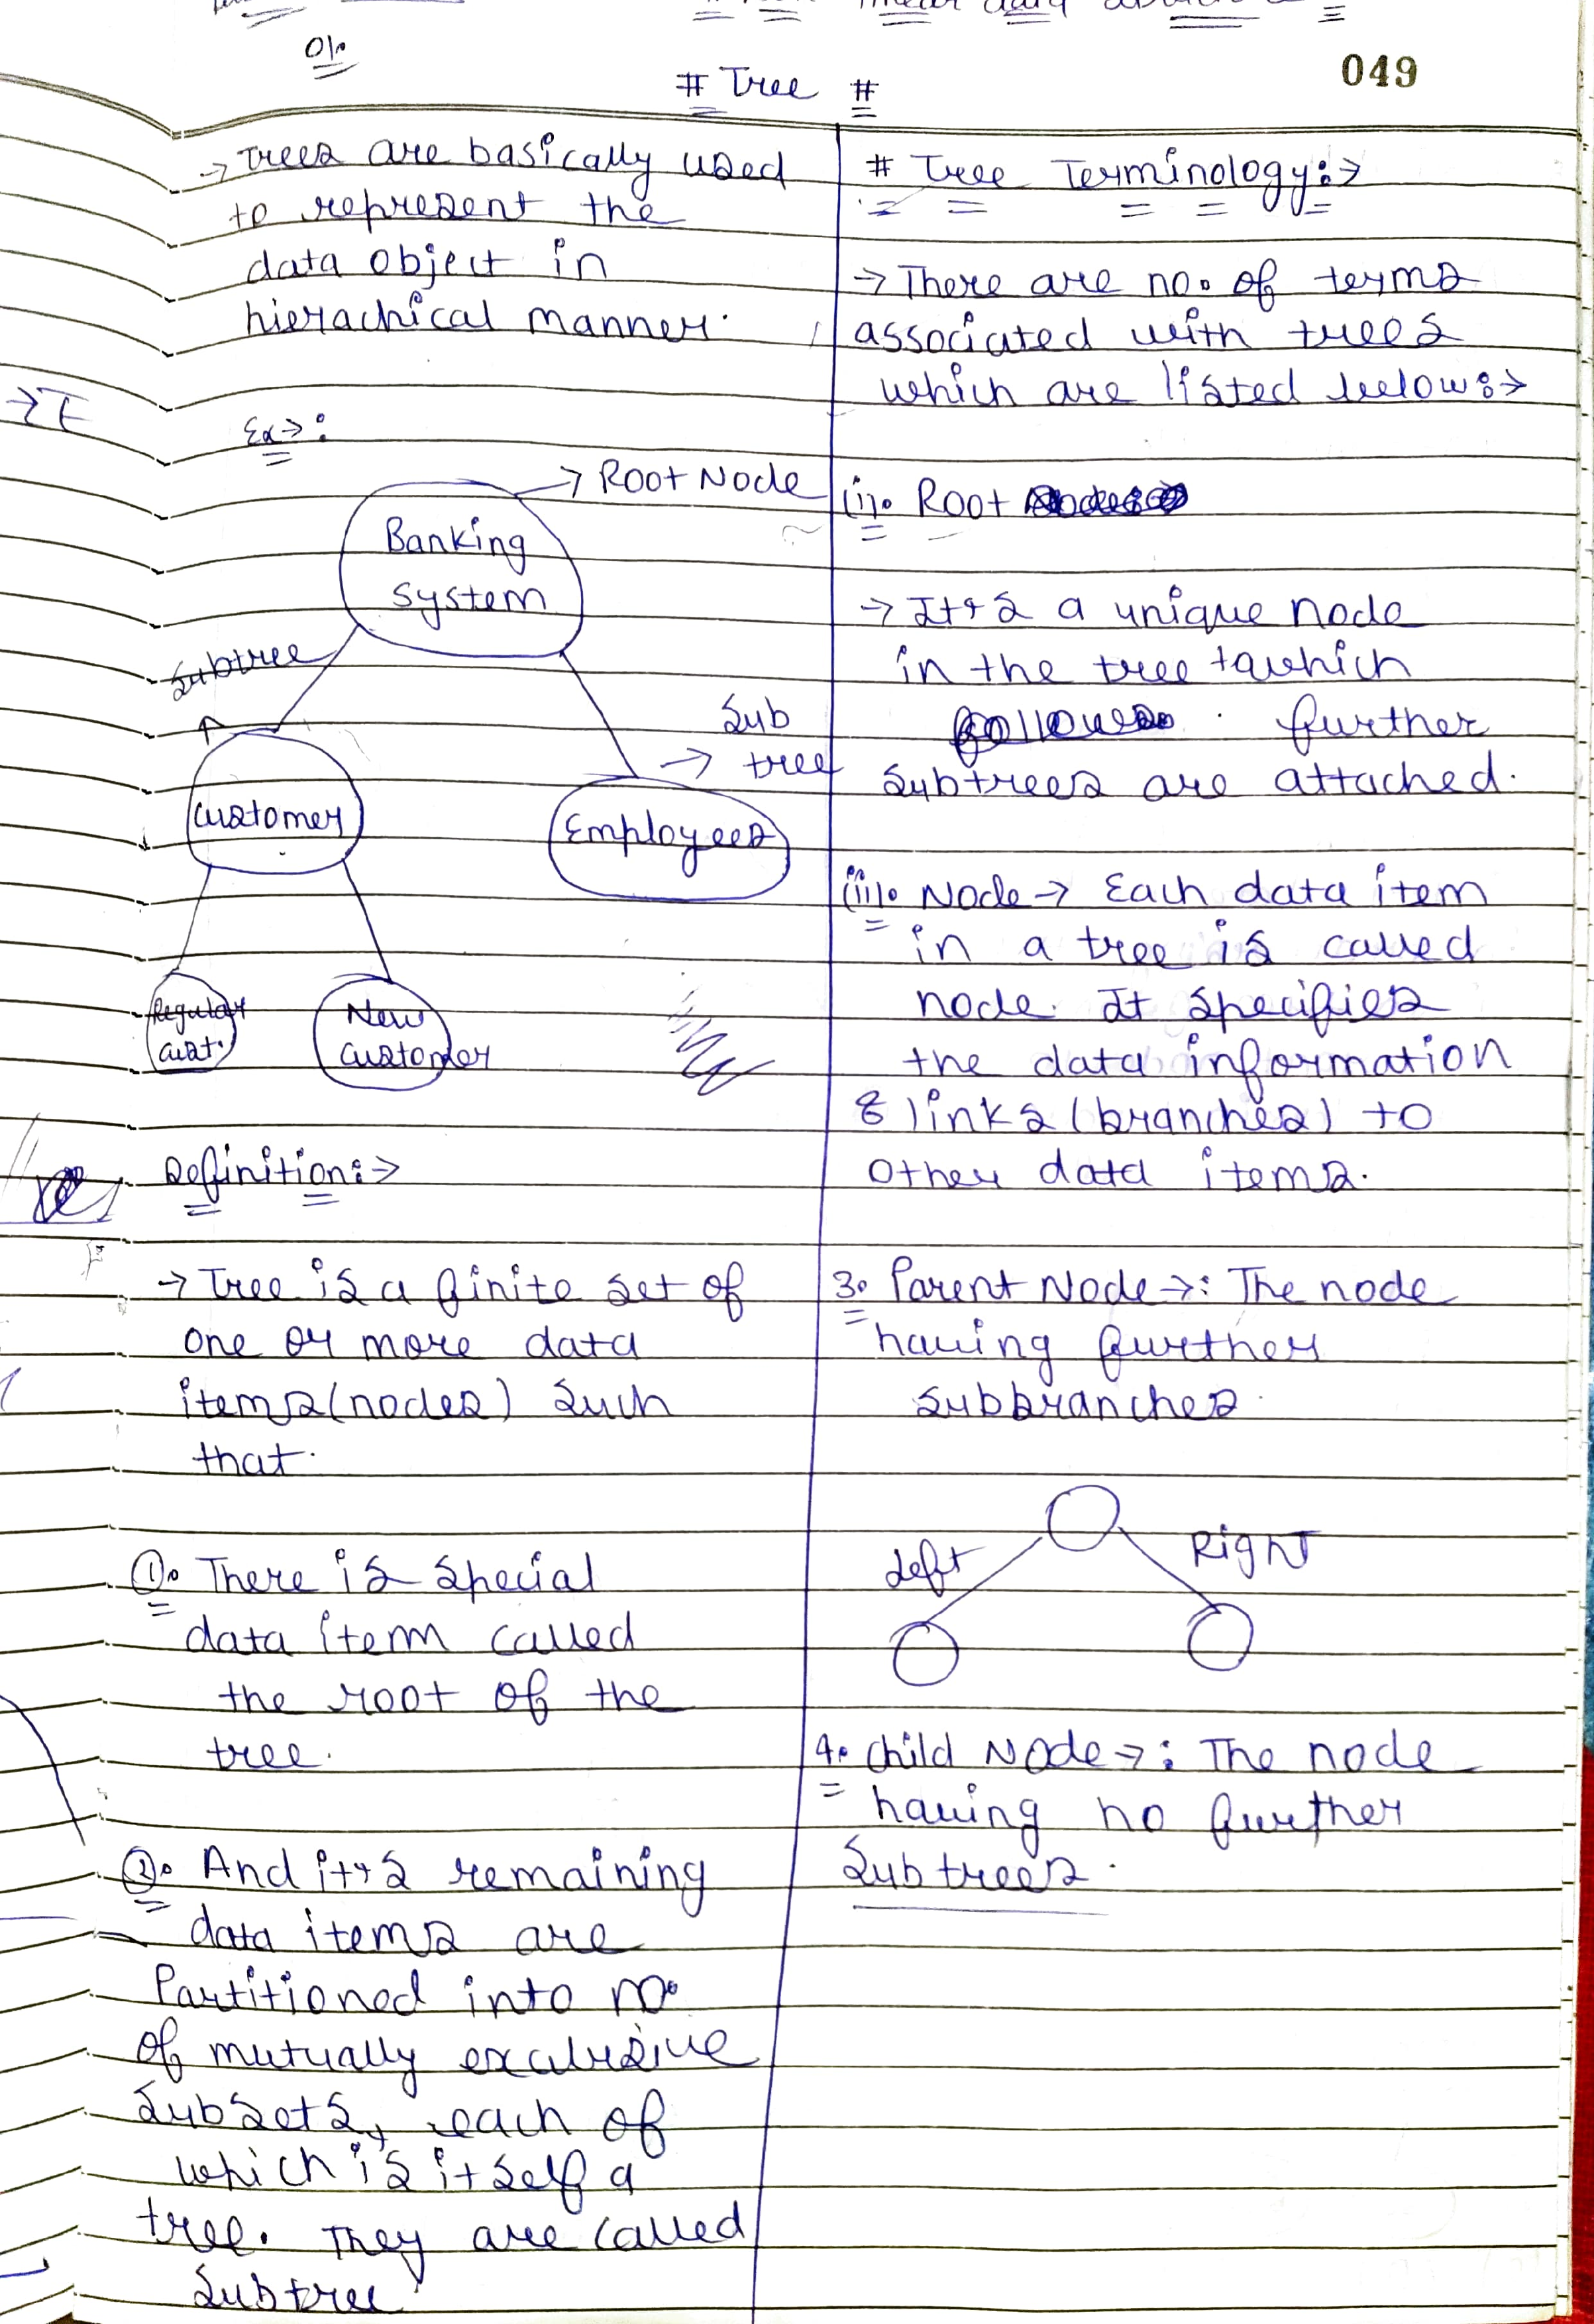 linear data
01.
# Tree #
049
→ Trees are basically used
to represent the
data object in
hierachical manner.
Ex→:
→ Root Node
Banking
System
Subtree
Sub
→ tree
Customer
Employees
Regular
cust.
New
customer
Definition:→
→ Tree is a finite set of
one or more data
items (nodes) such
that.
①. There is special
data item called
the root of the
tree.
②. And it's remaining
data items are
Partitioned into no.
of mutually exculusive
Subsets, each of
which is itself a
tree. They are called
Subtree
# Tree Terminology:→
→ There are no. of terms
associated with trees
which are listed below:→
(i). Root
→ It's a unique node
in the tree to which
further
Subtrees are attached.
(ii). Node → Each data item
in a tree is called
node. It specifies
the data information
& links (branches) to
other data items.
3. Parent Node →: The node
having further
subbranches.
Left
Right
4. Child Node →: The node
having no further
Subtrees.